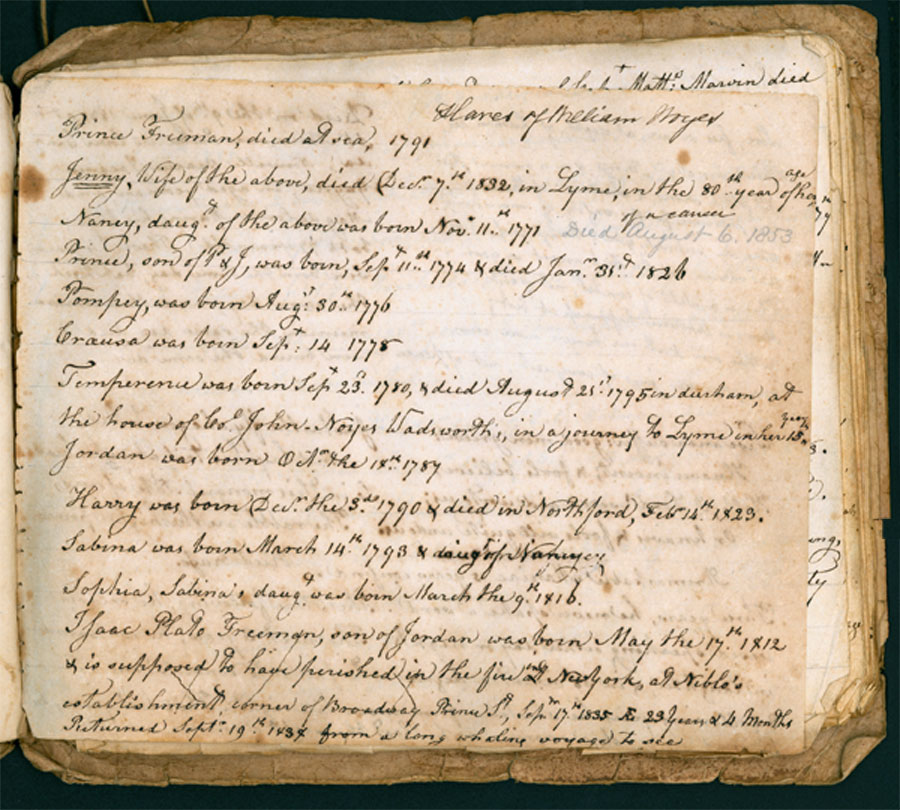 Mattw. Marvin died
Slaves of William Noyes
Prince Freeman, died at sea, 1791
Jenny, Wife of the above, died Decr. 7.th 1832, in Lyme, in the 80th year of her age
of a cancer
Nancy, daugt. of the above was born Nov. 11.th 1771 Died August 6. 1853
Prince, son of P & J, was born, Sept. 11th 1774 & died Janr. 31st. 1826
Pompey, was born Augt. 30th. 1776
Crausa was born Sept. 14 1778
Temperence was born Sept. 23d. 1780, & died August 21st. 1795 in durham, at
the house of Col. John Noyes Wadsworth's, in a journey to Lyme in her 15. year
Jordan was born Octr. the 18th. 1787
Harry was born Decr. the 3rd 1790 & died in Northford, Febr. 14th 1823.
Sabina was born March 14.th 1793 & daugt. of Nancy
Sophia, Sabina's daugt. was born March the 9.th 1816.
Isaac Plato Freeman, son of Jordan was born May the 17.th 1812
& is supposed to have perished in the fire at New York, at Niblo's
establishment, corner of Broadway Prince St., Sepr. 17.th 1835 Æ 23 Years & 4 Months
Returned Septr. 19.th 1837 from a long whaling voyage to see